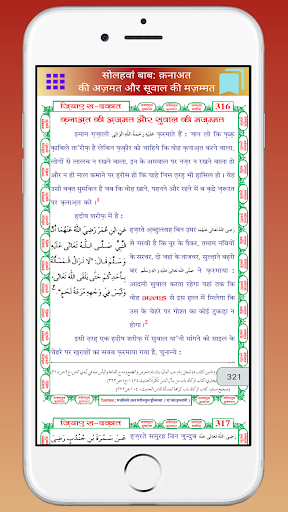 सोलहवां बाब: क़नाअत
की अज़मत और सुवाल की मज़म्मत
ज़ियाए स-दक़ात 316
क़नाअत की अज़मत और सुवाल की मज़म्मत
इमाम ग़ज़ाली फ़रमाते हैं : जान लो कि फ़क़्र
क़ाबिले ता'रीफ़ है लेकिन फ़क़ीर को चाहिये कि वोह क़नाअत करने वाला,
लोगों से लालच न रखने वाला, इन के अमवाल पर नज़र न रखने वाला हो
और न ही माल कमाने पर हरीस हो कि चाहे जिस तरह भी हासिल हो। येह
उसी वक़्त मुमकिन है जब कि वोह खाने, पहनने और रहने में ब क़दरे ज़रूरत
पर क़नाअत करे। 1
हदीस शरीफ़ में है :
हज़रते अब्दुल्लाह बिन उमर
से मरवी है कि नूर के पैकर, तमाम नबियों
के सरवर, दो जहां के ताजवर, सुल्ताने बहरो
बर ने फ़रमाया :
आदमी सुवाल करता रहेगा यहां तक कि
वोह अल्लाह से इस हाल में मिलेगा कि
उस के चेहरे पर गोश्त का कोई टुकड़ा न
होगा। 2
عَنِ ابْنِ عُمَرَ رَضِيَ اللهُ عَنْهُمَا أَنَّ
النَّبِيَّ صَلَّى اللهُ تَعَالَى عَلَيْهِ
وَسَلَّمَ قَالَ: "لَا تَزَالُ الْمَسْأَلَةُ
بِأَحَدِكُمْ حَتَّى يَلْقَى اللهَ تَعَالَى،
وَلَيْسَ فِي وَجْهِهِ مُزْعَةُ لَحْمٍ".
इसी तरह एक हदीस शरीफ़ में सुवाल या'नी मांगने को साइल के
चेहरे पर ख़राशों का सबब फ़रमाया गया है, चुनान्चे :
321
ज़ियाए स-दक़ात 317
عَنْ سَمُرَةَ بْنِ جُنْدُبٍ رَضِيَ
हज़रते समुरह बिन जुन्दुब